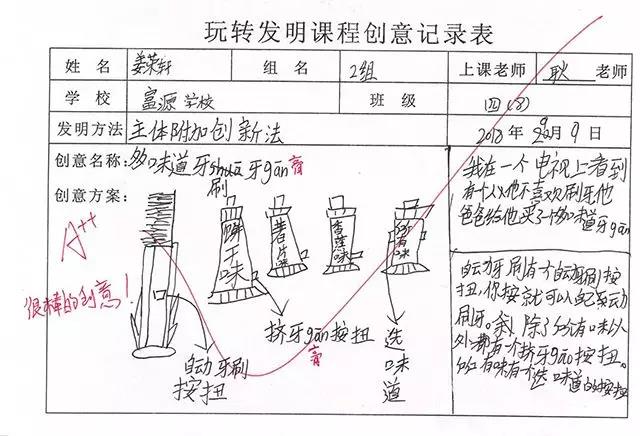 玩转发明课程创意记录表
姓名 姜荣轩 组名 2组 上课老师 耿 老师
学校 富源学校 班级 四(8)
发明方法 主体附加创新法 2018年9月9日
创意名称:多味道牙shuā牙gān
刷 膏
创意方案:
A++
很棒的创意!
饼干味
薯片味
香蕉味
自动牙刷
按扭
挤牙gān按扭
膏
选
味
道
我在一个电视上看到
有个人他不喜欢刷牙他
爸爸给他买了个多味道牙gān
自动牙刷有个自动刷按
扭,你按就可以
刷牙。除了
外都有一个挤牙gāo按扭。
有味有个选味道的按扭